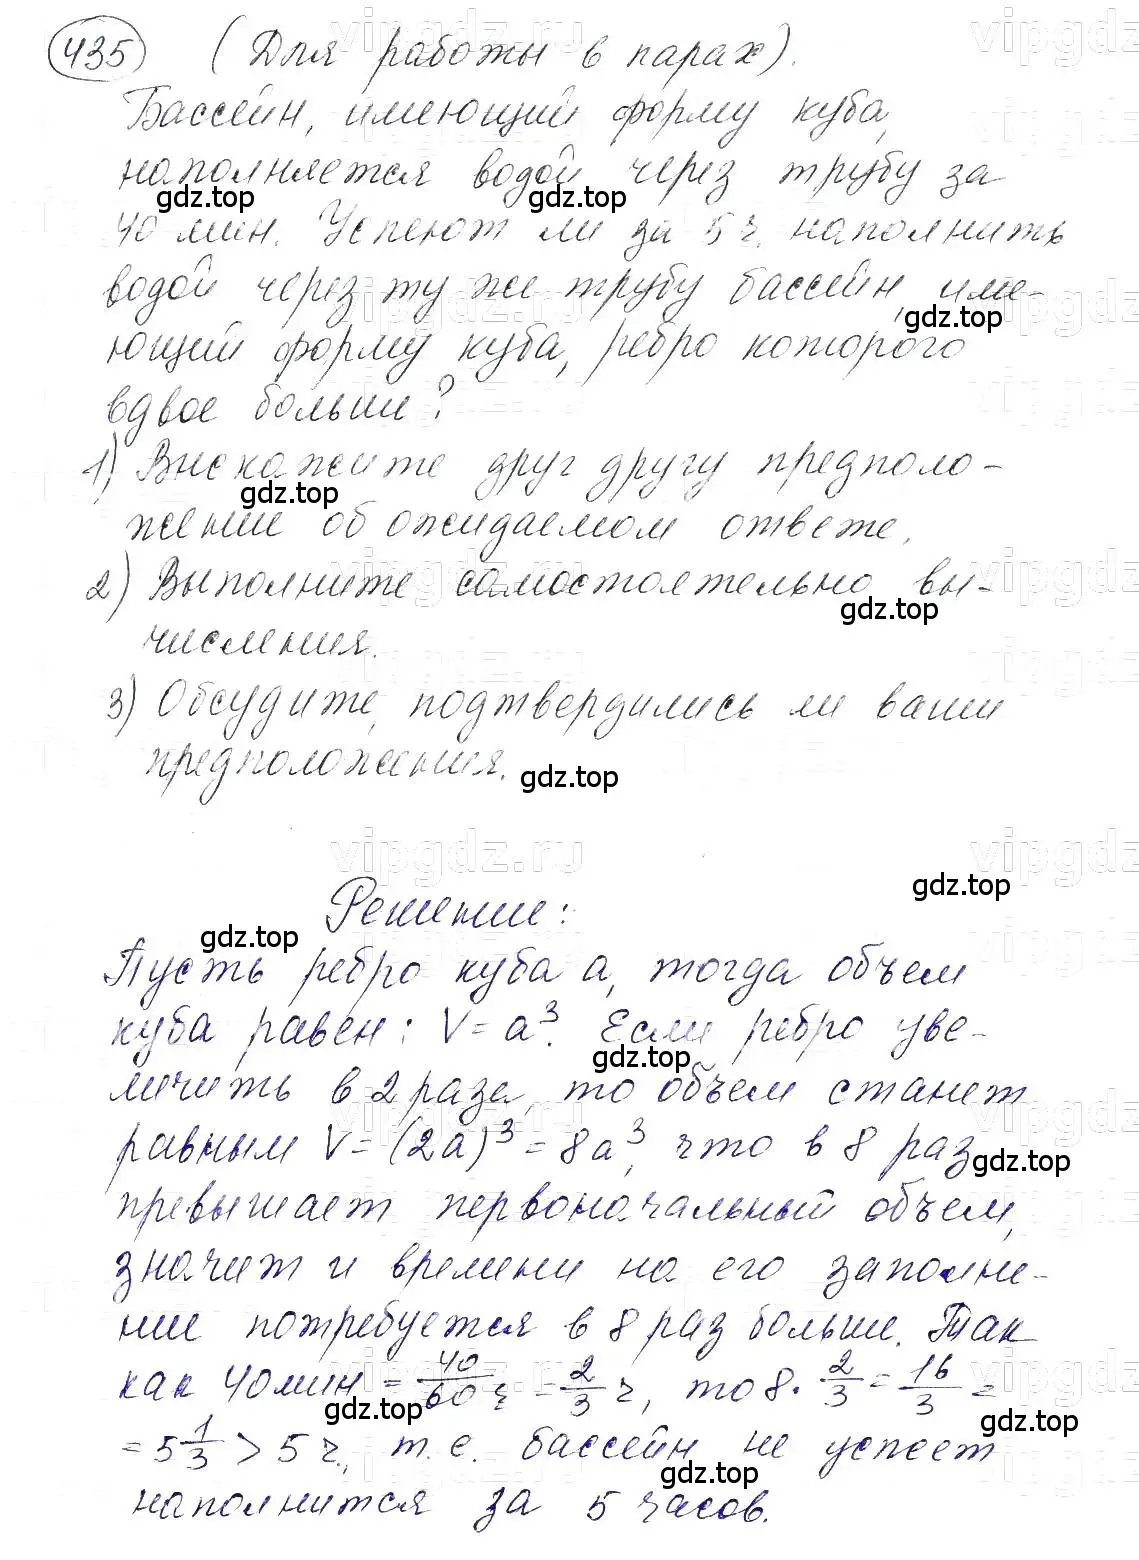 435 (Для работы в парах).
Бассейн, имеющий форму куба,
наполняется водой через трубу за
40 мин. Успеют ли за 5 ч. наполнить
водой через ту же трубу бассейн, име-
ющий форму куба, ребро которого
вдвое больше?
1) Выскажите друг другу предполо-
жение об ожидаемом ответе.
2) Выполните самостоятельно вы-
числения.
3) Обсудите, подтвердились ли ваши
предположения.
Решение:
Пусть ребро куба a, тогда объем
куба равен: V = a³. Если ребро уве-
личить в 2 раза, то объем станет
равным V = (2a)³ = 8a³, что в 8 раз
превышает первоначальный объем,
значит и времени на его заполне-
ние потребуется в 8 раз больше. Так
как 40 мин = 40/60 ч = 2/3 ч, то 8 · 2/3 = 16/3 =
= 5 1/3 > 5 ч., т.е. бассейн не успеет
наполнится за 5 часов.